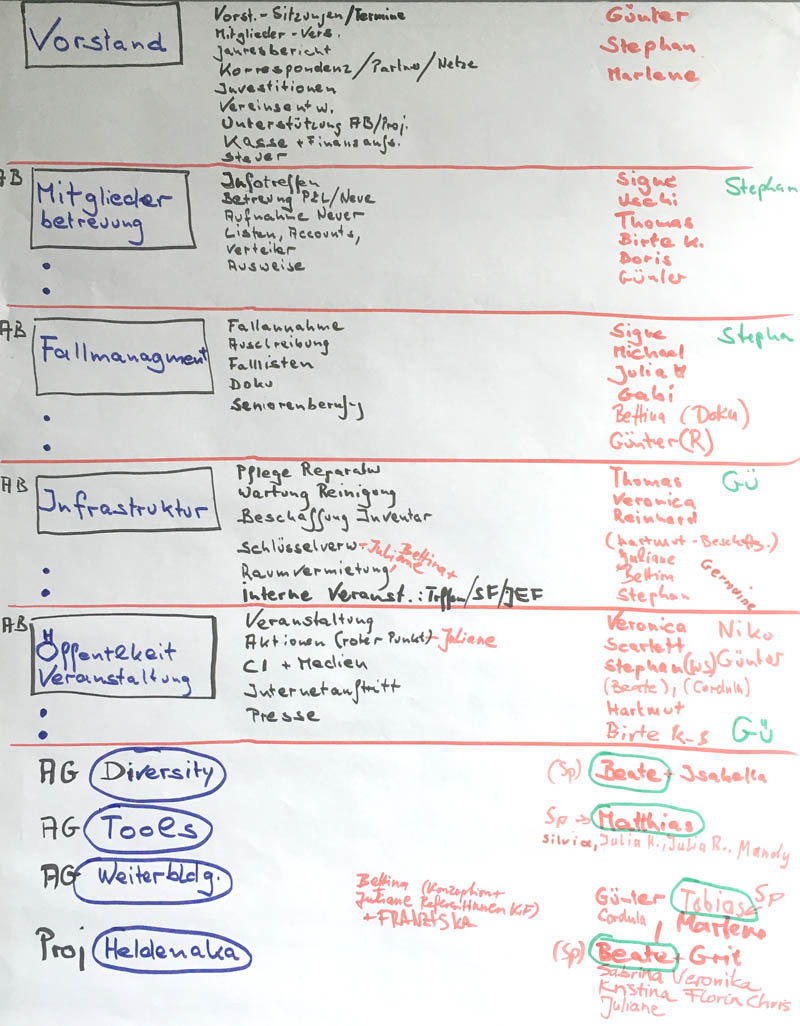 Vorstand
Vorst.-Sitzungen/Termine
Mitglieder-Vers.
Jahresbericht
Korrespondenz/Partner/Netze
Investitionen
Vereinsentw.
Unterstützung AB/Proj.
Kasse + Finanzaufs.
Steuer
Günter
Stephan
Marlene
AB
Mitglieder
betreuung
Infotreffen
Betreuung PEL/Neue
Aufnahme Neuer
Listen, Accounts,
Verteiler
Ausweise
Signe
Uschi
Thomas
Birte K.
Doris
Günter
Stephan
AB
Fallmanagment
Fallannahme
Auschreibung
Falllisten
Doku
Signe
Michael
Julia
Gabi
Bettina (Doku)
Günter (R)
Stepha
AB
Infrastruktur
Pflege Reparatur
Wartung Reinigung
Beschaffung Inventar
Schlüsselverw - Juliane, Bettina +
Raumvermietung
Interne Veranst.: Treffen/SF/JEF
Thomas
Veronica
Reinhard
(Hartmut - Beschaffg.)
Juliane
Bettina
Stephan
Germaine
GÜ
AB
Öffentlkeit
Veranstaltung
Veranstaltung
Aktionen (roter Punkt) - Juliane
CI + Medien
Internetauftritt
Presse
Veronica Niko
Scarlett
Stephan (WS) Günter
(Beate), (Cordula)
Hartmut
Birte K-S GÜ
AG Diversity
(Sp) Beate + Isabella
AG Tools
Sp → Matthias
Silvia, Julia H., Julia R., Mandy
AG Weiterbldg.
Bettina (Konzeption +
Juliane ReferentInnen KiF)
+ FRANZISKA
Günter Tobias Sp
Cordula Marlene
Proj Heldenaka
(Sp) Beate + Grit
Sabrina Veronika
Kristina Florin Chris
Juliane